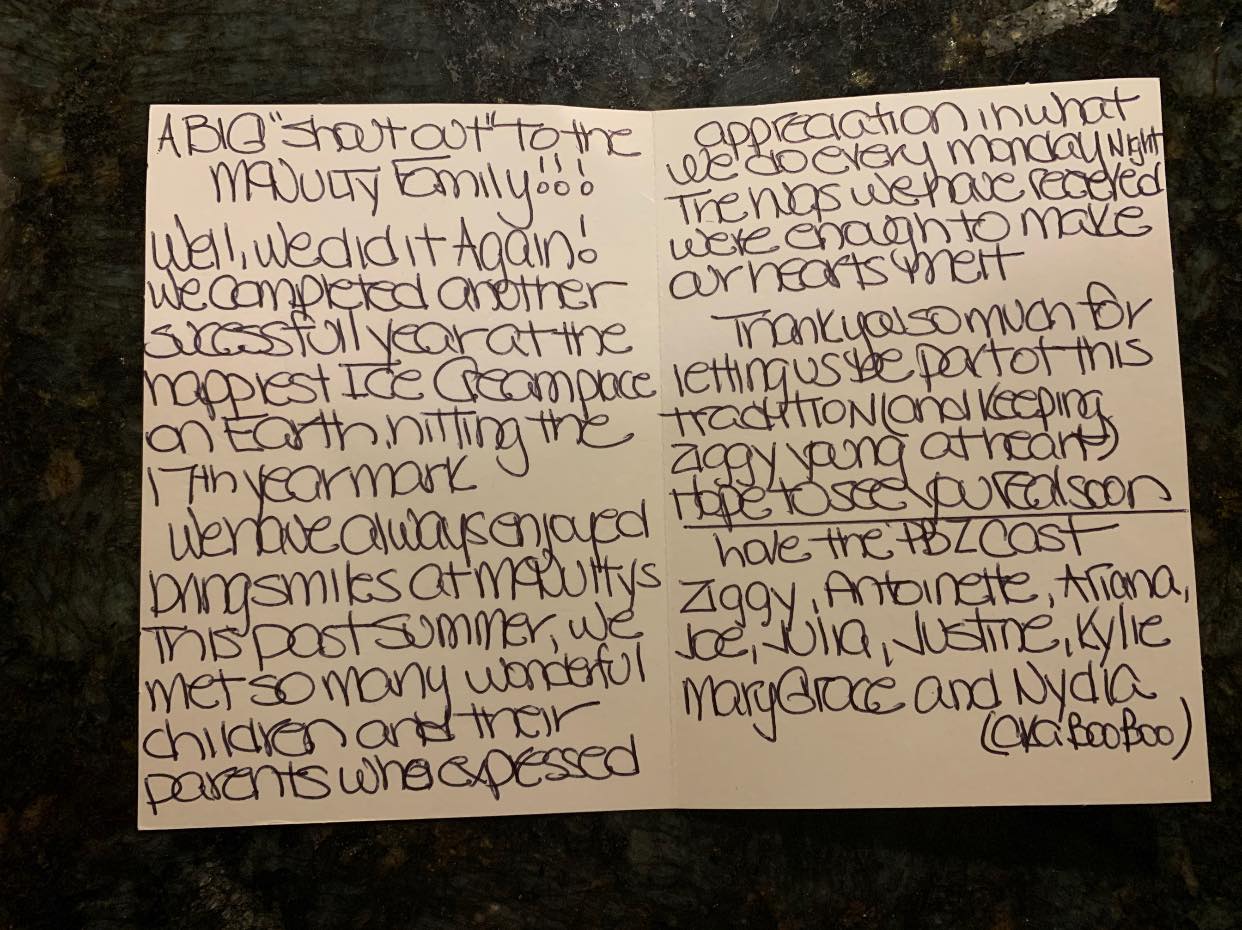 A BIG "shout out" to the
McNulty Family!!!
Well, we did it Again!
we completed another
sucessfull year at the
happiest Ice Cream place
on Earth, hitting the
17th year mark
We have always enjoyed
bring smiles at McNulty's
This past summer, we
met so many wonderful
children and their
parents who expessed
appreciation in what
we do every monday Night
The hugs we have recieved
were enough to make
our hearts melt
Thank you so much for
letting us be part of this
tradition (and keeping
Ziggy young at heart)
Hope to see you real soon
love the PBZ Cast
Ziggy, Antoinette, Ariana,
Joe, Julia, Justine, Kylie
Mary Grace and Nydia
(aka Boo Boo)